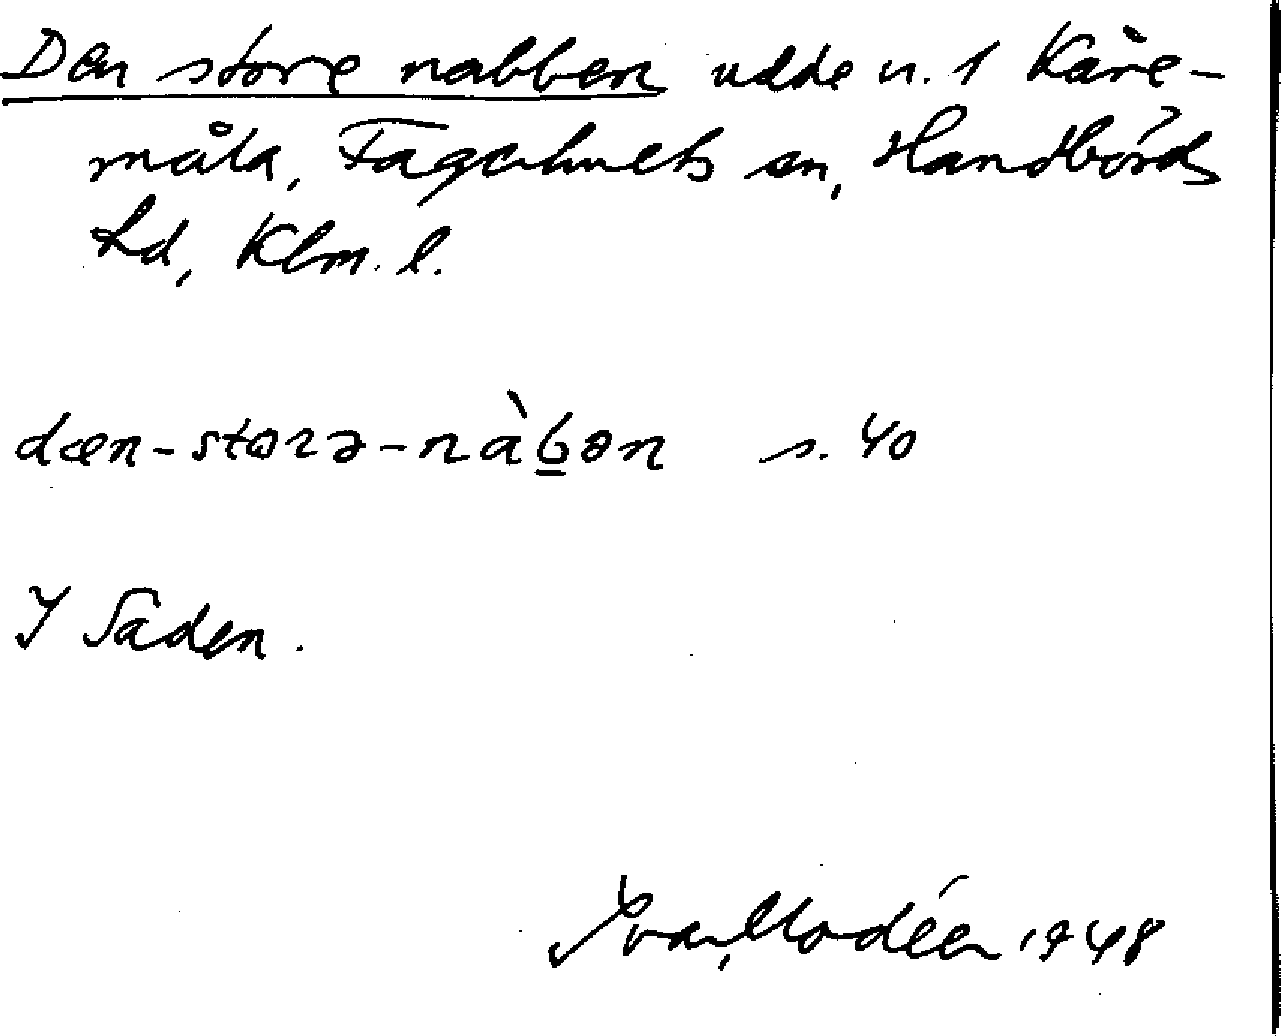 Den store nabben udde n. 1 Kåre-
måla, Fagerhults sn, Handbörds
hd, Klm. l.
dæn-stɷrə-nàb̲ən s. 40
I Saden.
Ivar Modéer 1948